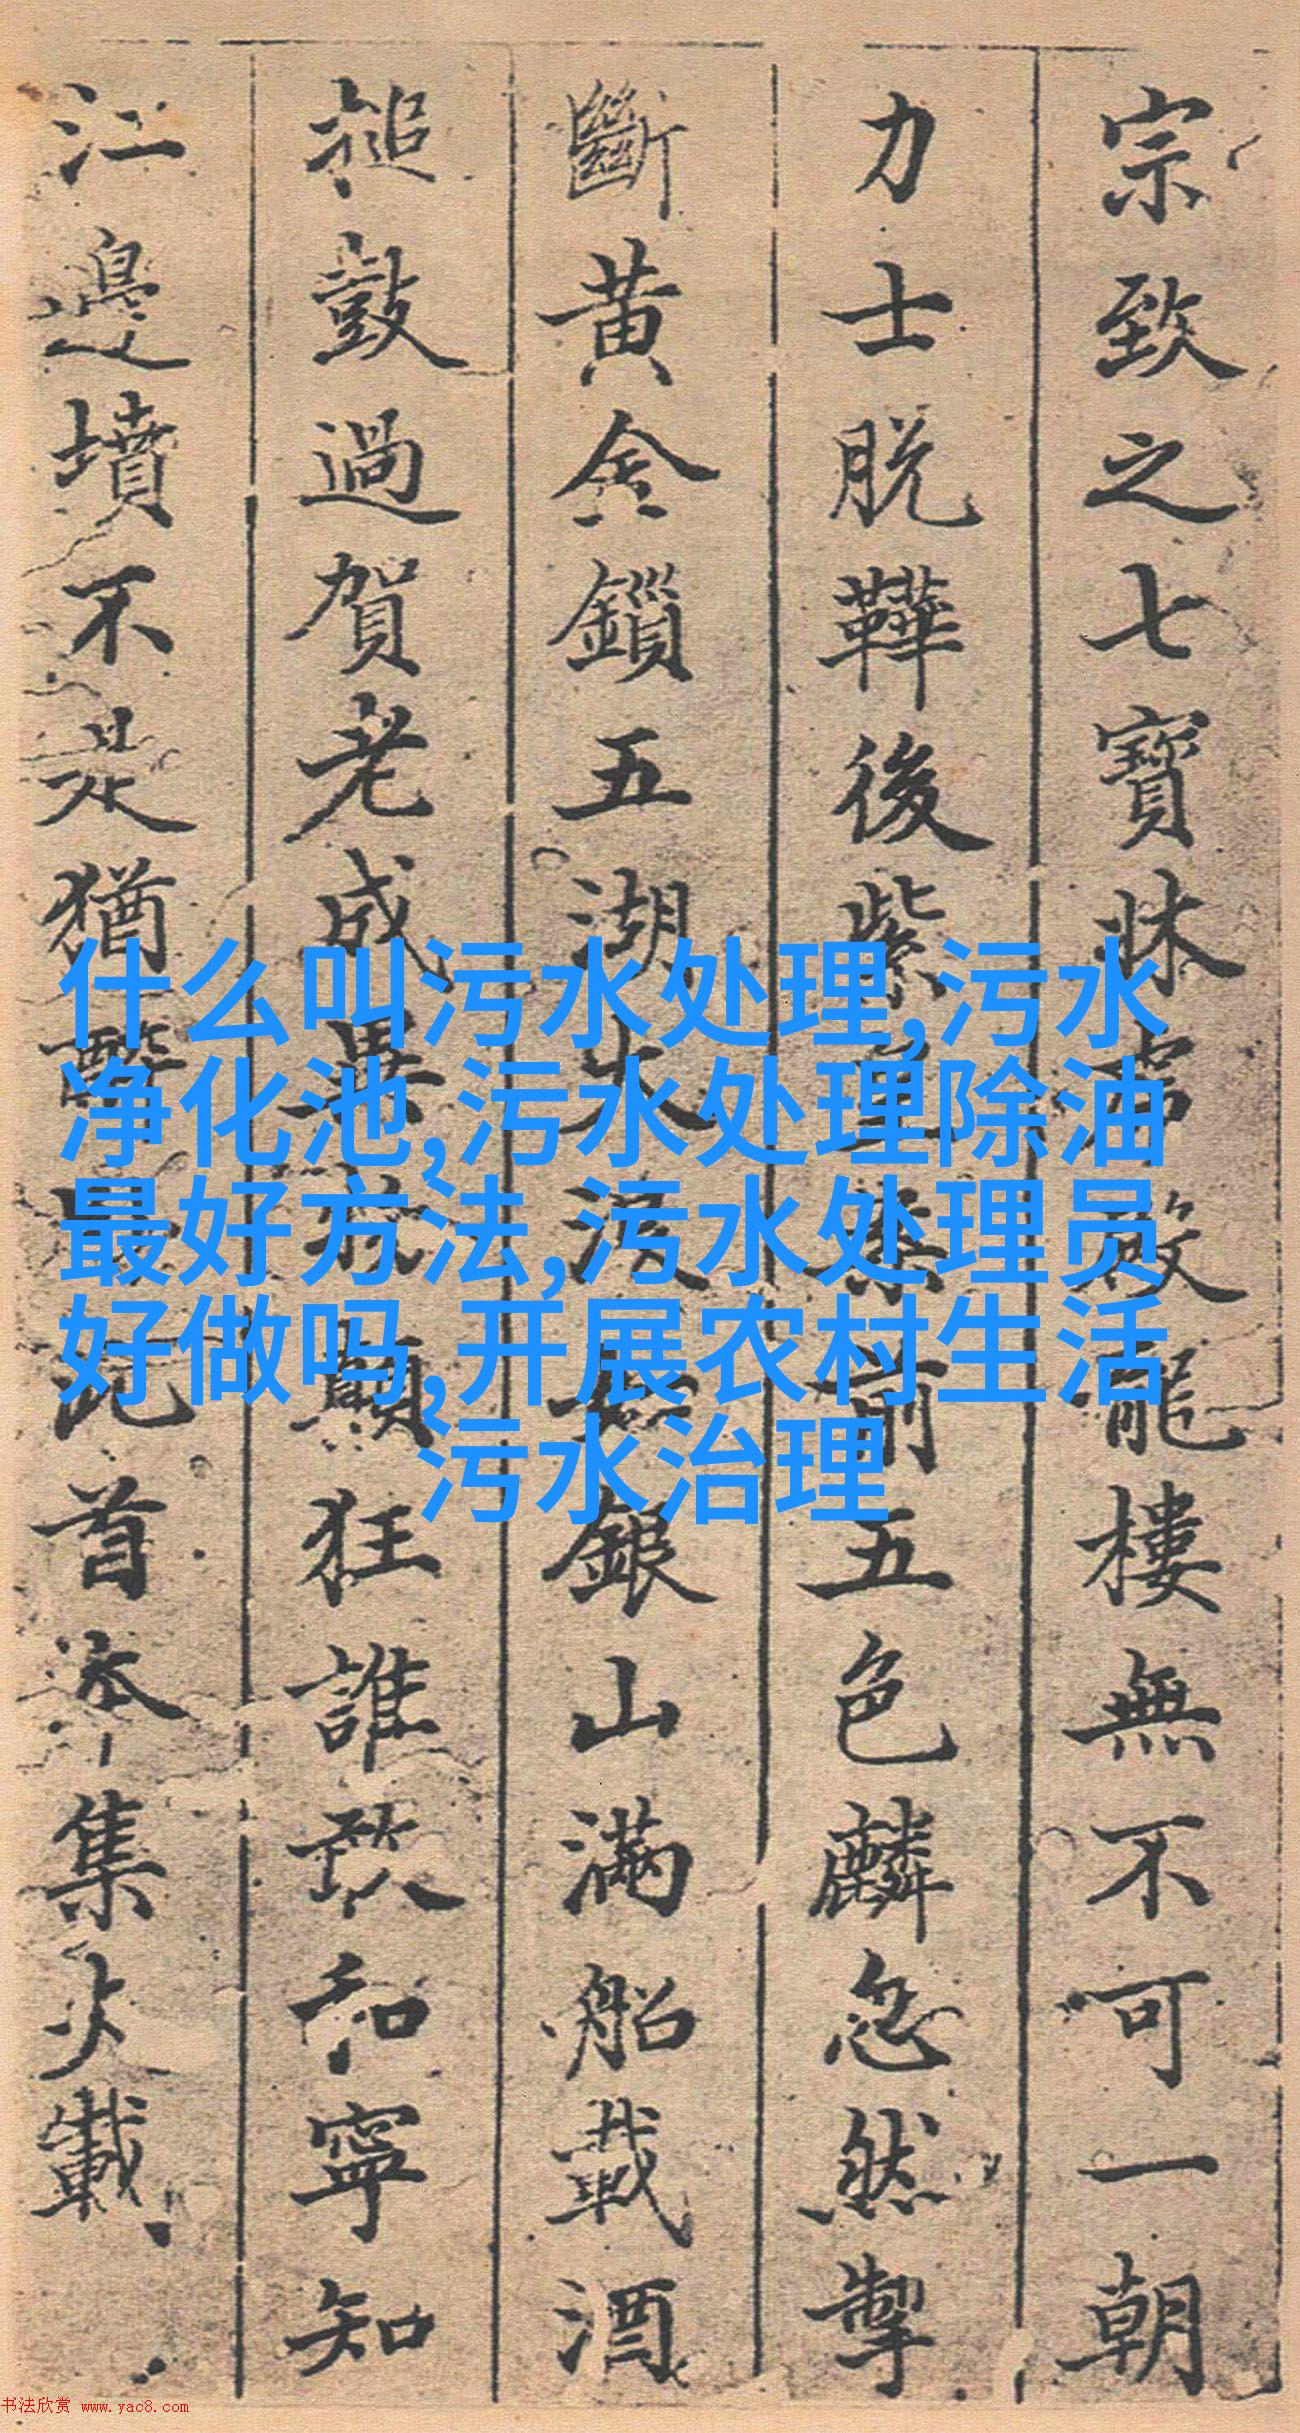 宗致之七寶牀殿龍樓無不可一朝
力士脫鞾後紫皇案前五色麟忽然掣
斷黃金鎖五湖大浪如銀山滿船載酒
搥鼓過賀老成異物顛狂誰敢和寧知
江邊墳不是猶醉此首本集載
什么叫污水处理,污水
净化池,污水处理除油
最好方法,污水处理员
好做吗,开展农村生活
污水治理
书法欣赏 www.yac8.com